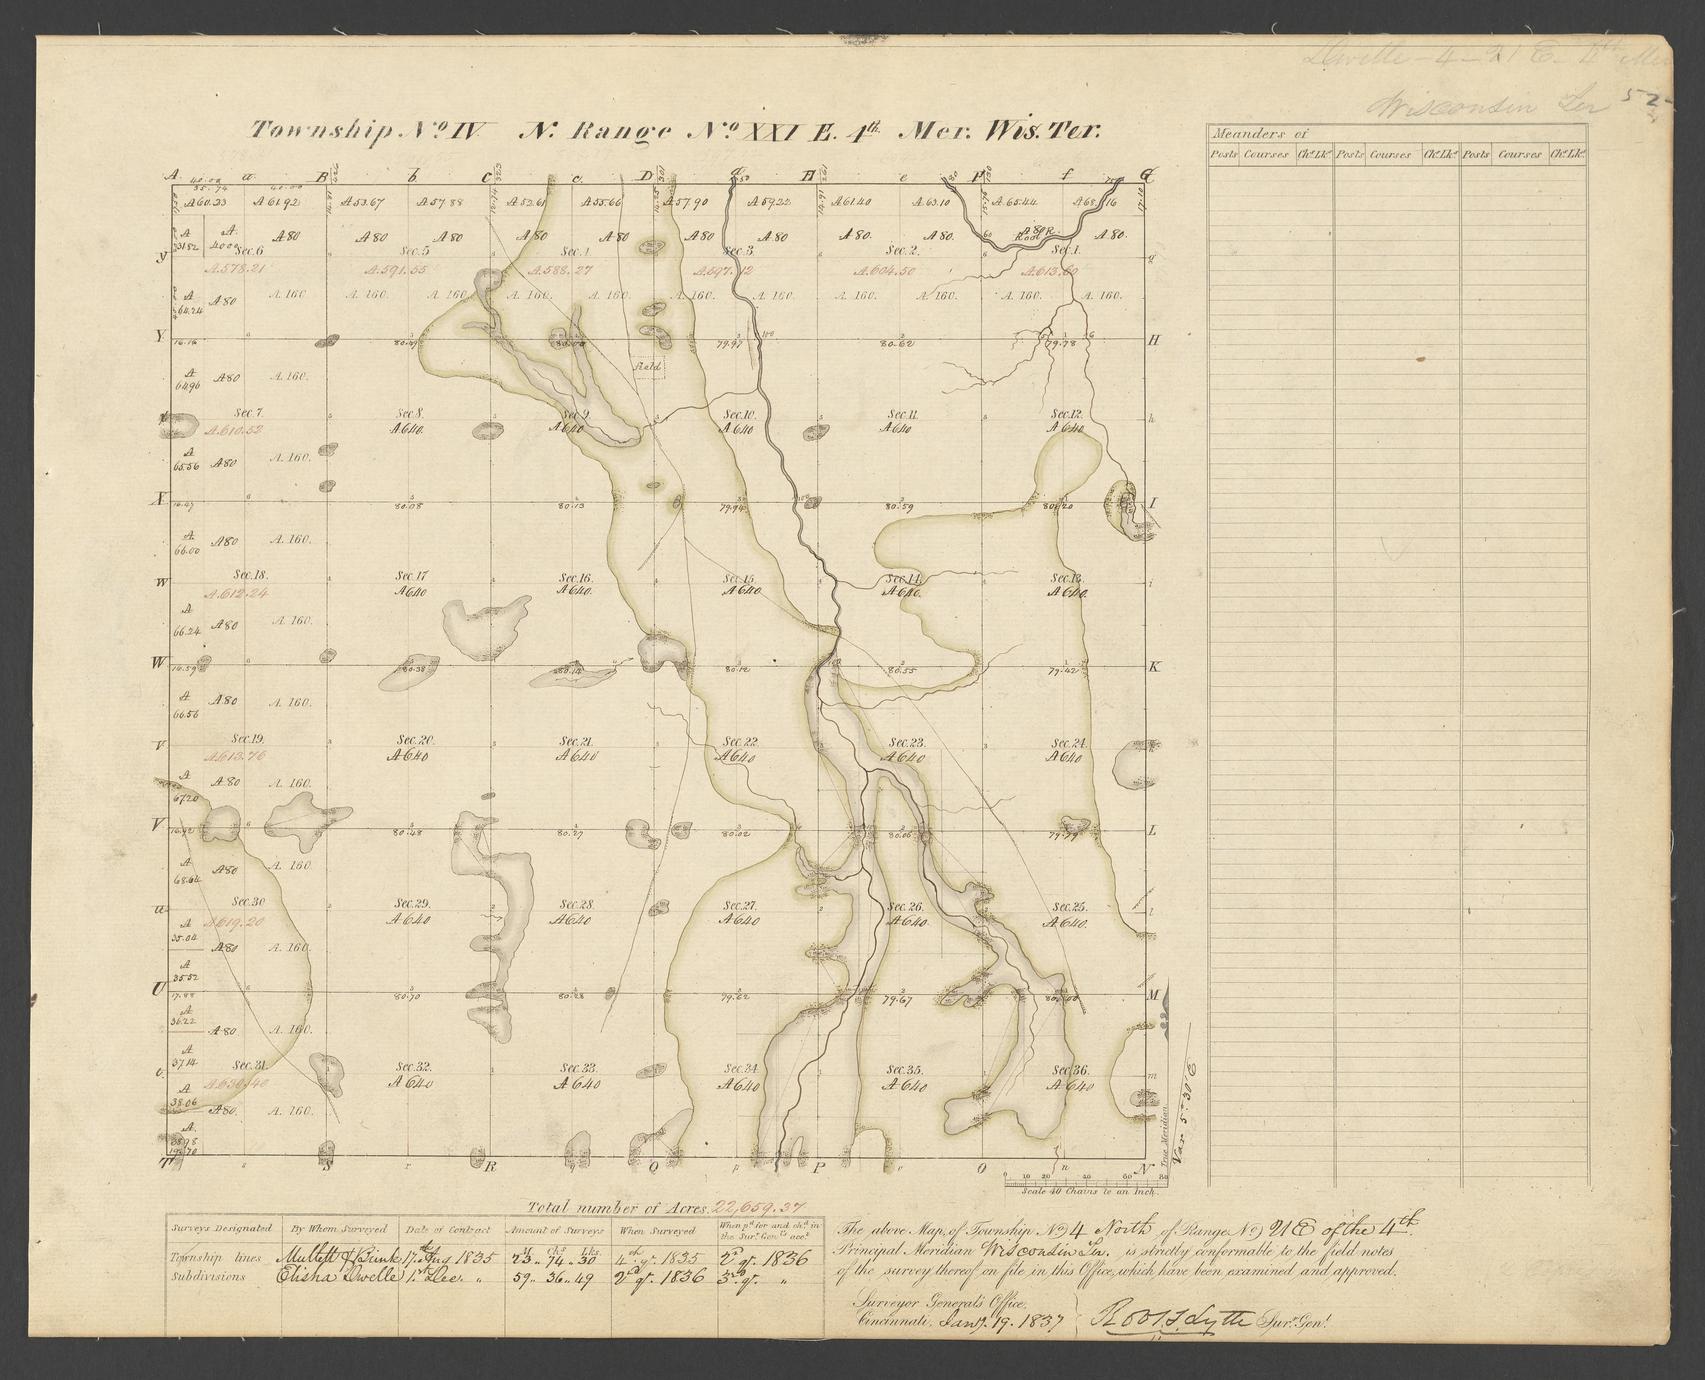 Dwelle - 4 - 21 E. 4th Mer
Wisconsin Ter 52
Township No. IV N. Range No. XXI E. 4th Mer. Wis. Ter.
Meanders of
Posts Courses Chs.Lks. Posts Courses Chs.Lks. Posts Courses Chs.Lks.
A a B b C c D d H e F f G
A 60.33 A 61.92 A 53.67 A 57.88 A 52.61 A 55.66 A 57.90 A 59.22 A 61.40 A 63.10 A 65.44 A 68.16
A 31.82 A 40.00 A 80 A 80 A 80 A 80 A 80 A 80 A 80 A 80. A 80. A 80.
y Sec. 6 Sec. 5 Sec. 4 Sec. 3 Sec. 2. Sec. 1. g
A. 578.21 A. 591.55 A. 588.27 A. 597.12 A. 604.50 A. 613.60
A 64.24 A 80 A. 160. A. 160. A. 160 A. 160. A. 160. A. 160. A. 160. A. 160. A. 160. A. 160. A. 160.
Y 16.16 80.49 80.00 79.97 80.62 79.78 H
field
A 64.96 A 80 A. 160.
Sec. 7. Sec. 8. Sec. 9. Sec. 10. Sec. 11. Sec. 12. h
A. 610.52 A 640. A 640 A 640 A 640 A 640
A 65.56 A 80 A. 160.
X 16.47 80.08 80.13 79.94 80.59 80.20 I
A 66.00 A 80 A. 160.
w Sec. 18. Sec. 17 Sec. 16. Sec. 15. Sec. 14. Sec. 13. i
A. 612.24 A 640 A 640. A 640. A 640. A 640.
A 66.24 A 80 A. 160.
W 16.59 80.38 80.14 80.12 80.55 79.42 K
A 66.56 A 80 A. 160.
v Sec. 19. Sec. 20. Sec. 21. Sec. 22. Sec. 23. Sec. 24. k
A. 613.76 A 640 A 640 A 640 A 640 A 640
A 67.20 A 80 A. 160.
V 16.92 80.48 80.27 80.02 80.06 79.79 L
A 68.64 A 80 A. 160.
u Sec. 30 Sec. 29. Sec. 28. Sec. 27. Sec. 26. Sec. 25. l
A 619.20 A 640 A 640 A 640 A 640. A 640.
A 35.04 A 80 A. 160
A 35.52
U 17.88 80.70 80.28 79.62 79.67 80.00 M
A 36.22 A 80 A. 160.
A 37.14
Sec. 31. Sec. 32. Sec. 33. Sec. 34. Sec. 35. Sec. 36. m
A 630.40 A 640 A 640 A 640 A 640 A 640
A 38.06 A 80. A. 160.
T S r R q Q p P o O n N
True Meridian
Var 5° 30' E
Scale 40 Chains to an Inch.
Total number of Acres. 22,659.37
Surveys Designated By Whom Surveyed Date of Contract Amount of Surveys When Surveyed When pd. for and chd. in the Surr. Genls. acct.
Township lines Mullett & Brink 17th Aug 1835 23 m. 74 chs. 30 lks. 4th qr. 1835 2d qr. 1836
Subdivisions Elisha Dwelle 1st Dec. " 59.. 36..49 2d qr. 1836 3rd qr. "
The above Map, of Township No. 4 North of Range No. 21 E of the 4th
Principal Meridian Wisconsin Ter. is strictly conformable to the field notes
of the survey thereof on file in this Office, which have been examined and approved.
Surveyor General's Office,
Cincinnati, Jany. 19. 1837
Robt. T. Lytle Surr. Genl.